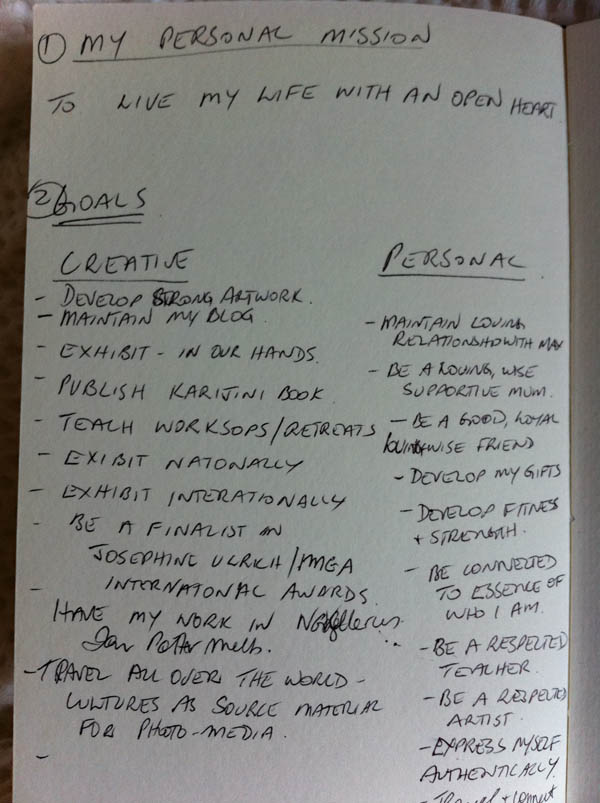 ① MY PERSONAL MISSION
TO LIVE MY LIFE WITH AN OPEN HEART
② GOALS
CREATIVE
- DEVELOP STRONG ARTWORK.
- MAINTAIN MY BLOG.
- EXHIBIT - IN OUR HANDS.
- PUBLISH KARIJINI BOOK.
- TEACH WORKSOPS/RETREATS
- EXIBIT NATONALLY
- EXHIBIT INTERATIONALLY
- BE A FINALIST IN
JOSEPHINE ULRICH/
INTERNATONAL AWARDS.
- HAVE MY WORK IN
Ian Potter Melb.
- TRAVEL ALL OVER THE WORLD -
CULTURES AS SOURCE MATERIAL
FOR PHOTO-MEDIA.
-
PERSONAL
- MAINTAIN LOVING
RELATIONSHIP WITH MAX
- BE A LOVING, WISE
SUPPORTIVE MUM.
- BE A GOOD, LOYAL
LOVING WISE FRIEND
- DEVELOP MY GIFTS
- DEVELOP FITNESS
+ STRENGTH.
- BE CONNECTED
TO ESSENCE OF
WHO I AM.
- BE A RESPECTED
TEACHER.
- BE A RESPECTED
ARTIST.
- EXPRESS MYSELF
AUTHENTICALLY.
- Travel + connect